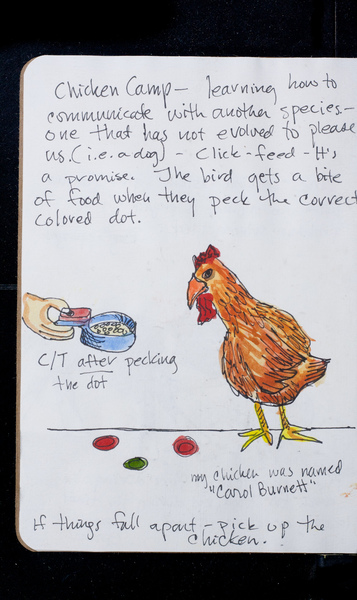 Chicken Camp - learning how to
communicate with another species -
one that has not evolved to please
us. (i.e. a dog) - Click - feed - It's
a promise. The bird gets a bite
of food when they peck the correct
colored dot.
C/T after pecking
the dot
my chicken was named
"Carol Burnett"
If things fall apart - pick up the
chicken.